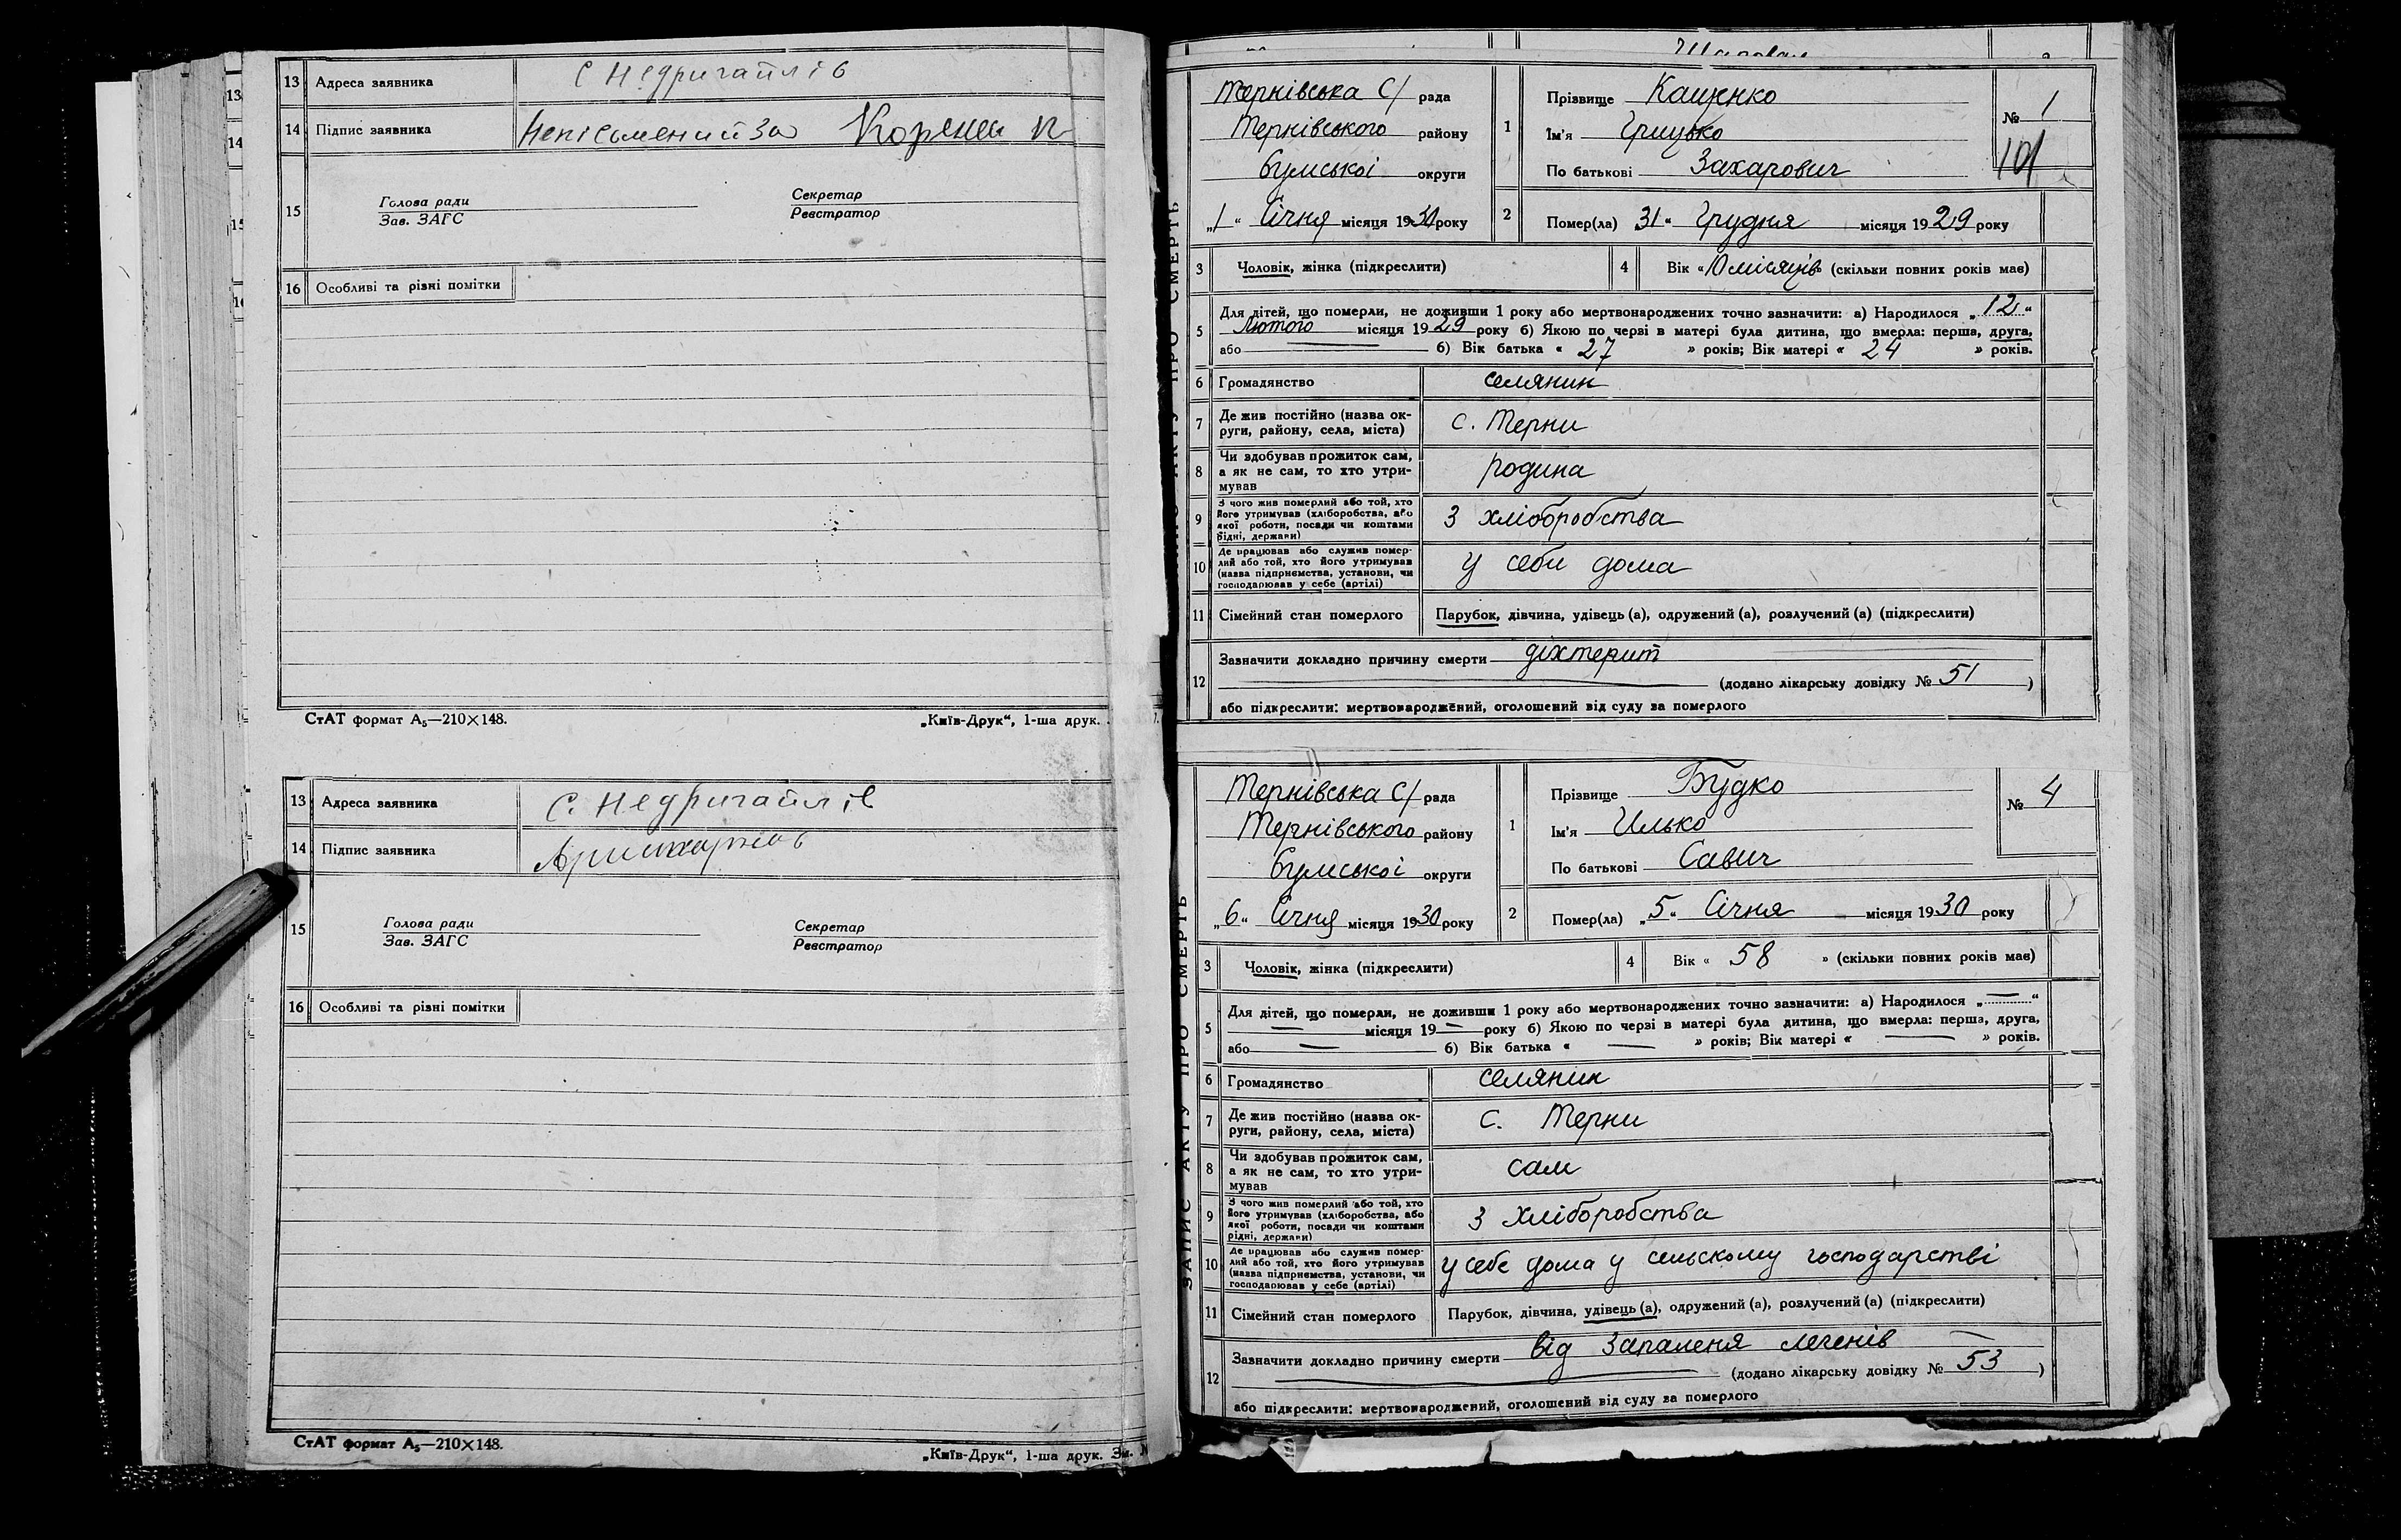 13 Адреса заявника с Недригайлів
14 Підпис заявника Неписьмений за
15 Голова ради
Зав. ЗАГС
Секретар
Реєстратор
16 Особливі та різні помітки
СтАТ формат А₅—210×148.
„Київ-Друк“, 1-ша друк.
13 Адреса заявника с. Недригайлів
14 Підпис заявника
15 Голова ради
Зав. ЗАГС
Секретар
Реєстратор
16 Особливі та різні помітки
СтАТ формат А₅—210×148.
„Київ-Друк“, 1-ша друк. Зм.
13
14
15
16
Шаповал
ЗАПИС АКТУ ПРО СМЕРТЬ
Тернівська С/ рада
Тернівського району
Сумської округи
„1“ Січня місяця 1930 року
1 Прізвище Кащенко
Ім'я Грицько
По батькові Захарович
№ 1
101
2 Помер(ла) 31“ Грудня місяця 1929 року
3 Чоловік, жінка (підкреслити)
4 Вік «10 місяців» (скільки повних років має)
5 Для дітей, що померли, не доживши 1 року або мертвонароджених точно зазначити: а) Народилося „12“
Лютого місяця 1929 року б) Якою по черві в матері була дитина, що вмерла: перша, друга,
або б) Вік батька « 27 » років; Вік матері « 24 » років.
6 Громадянство селянин
7 Де жив постійно (назва ок-
руги, району, села, міста) с. Терни
8 Чи здобував прожиток сам,
а як не сам, то хто утри-
мував родина
9 З чого жив померлий або той, хто
його утримував (хліборобства, або
якої роботи, посади чи коштами
рідні, держави) З хлібробства
10 Де працював або служив помер-
лий або той, хто його утримував
(назва підприємства, установи, чи
господарював у себе (артілі) У себи дома
11 Сімейний стан померлого Парубок, дівчина, удівець (а), одружений (а), розлучений (а) (підкреслити)
12 Зазначити докладно причину смерти діхтерит
(додано лікарську довідку № 51 )
або підкреслити: мертвонароджений, оголошений від суду за померлого
ЗАПИС АКТУ ПРО СМЕРТЬ
Тернівська С/ рада
Тернівського району
Сумської округи
„6“ Січня місяця 1930 року
1 Прізвище Будко
Ім'я Илько
По батькові Савич
№ 4
2 Помер(ла) „5“ Січня місяця 1930 року
3 Чоловік, жінка (підкреслити)
4 Вік « 58 » (скільки повних років має)
5 Для дітей, що померли, не доживши 1 року або мертвонароджених точно зазначити: а) Народилося „—“
— місяця 19— року б) Якою по черзі в матері була дитина, що вмерла: перша, друга,
або — б) Вік батька « — » років; Вік матері « — » років.
6 Громадянство селяник
7 Де жив постійно (назва ок-
руги, району, села, міста) с. Терни
8 Чи здобував прожиток сам,
а як не сам, то хто утри-
мував сам
9 З чого жив померлий або той, хто
його утримував (хліборобства, або
якої роботи, посади чи коштами
рідні, держави) З хліборобства
10 Де працював або служив помер-
лий або той, хто його утримував
(назва підприємства, установи, чи
господарював у себе (артілі) у себе дома у сельскому господарстві
11 Сімейний стан померлого Парубок, дівчина, удівець (а), одружений (а), розлучений (а) (підкреслити)
12 Зазначити докладно причину смерти від Запаленя легенів
(додано лікарську довідку № 53 )
або підкреслити: мертвонароджений, оголошений від суду за померлого